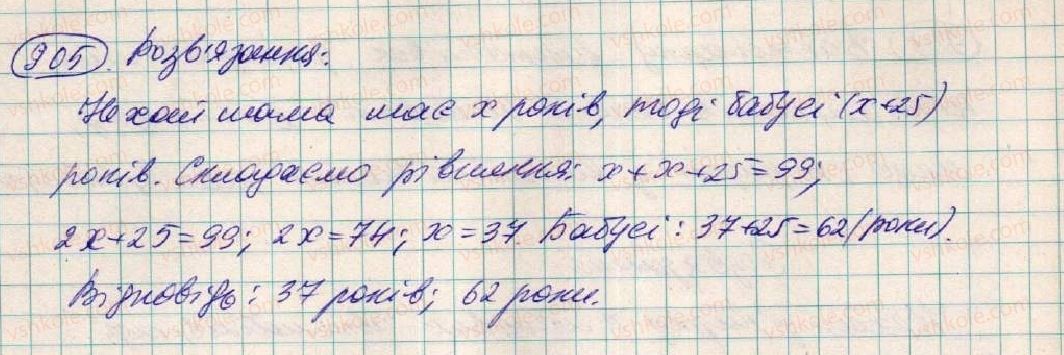 905. Розв'язання:
Нехай мама має x років, тоді бабусі (x+25)
років. Складаємо рівняння: x+x+25=99;
2x+25=99; 2x=74; x=37 Бабусі: 37+25=62(роки).
Відповідь: 37 років; 62 роки.